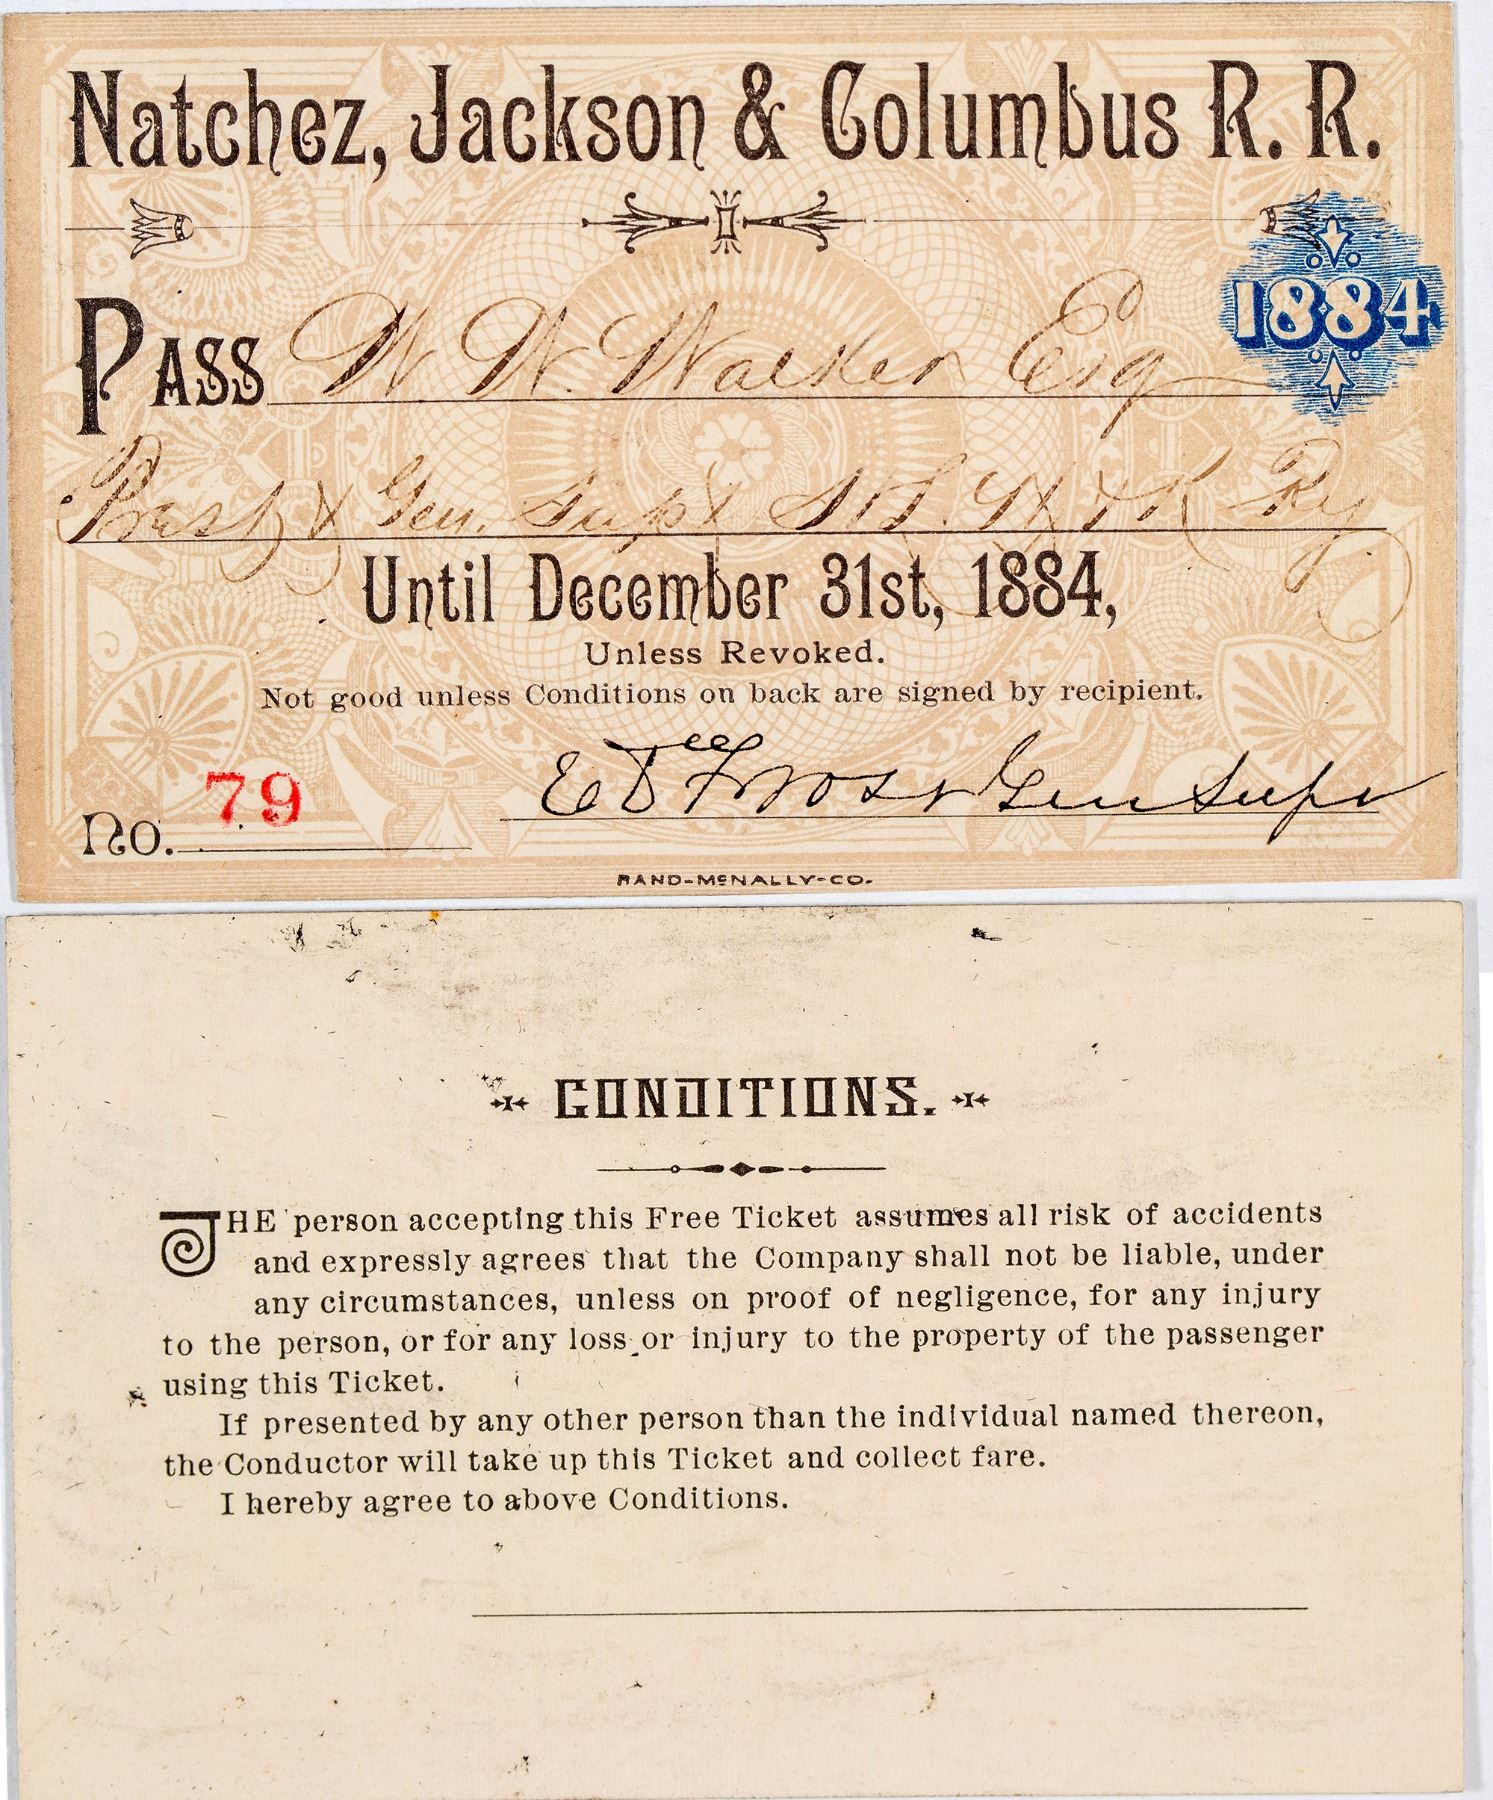 Natchez, Jackson & Columbus R. R.
1884
PASS W. W. Walker Esq
Prest & Gen. Supt St. L. H & K Ry
Until December 31st, 1884,
Unless Revoked.
Not good unless Conditions on back are signed by recipient.
79
No.
E Dee Frost Gen Supt
RAND-McNALLY-CO.
CONDITIONS.
THE person accepting this Free Ticket assumes all risk of accidents
and expressly agrees that the Company shall not be liable, under
any circumstances, unless on proof of negligence, for any injury
to the person, or for any loss or injury to the property of the passenger
using this Ticket.
If presented by any other person than the individual named thereon,
the Conductor will take up this Ticket and collect fare.
I hereby agree to above Conditions.